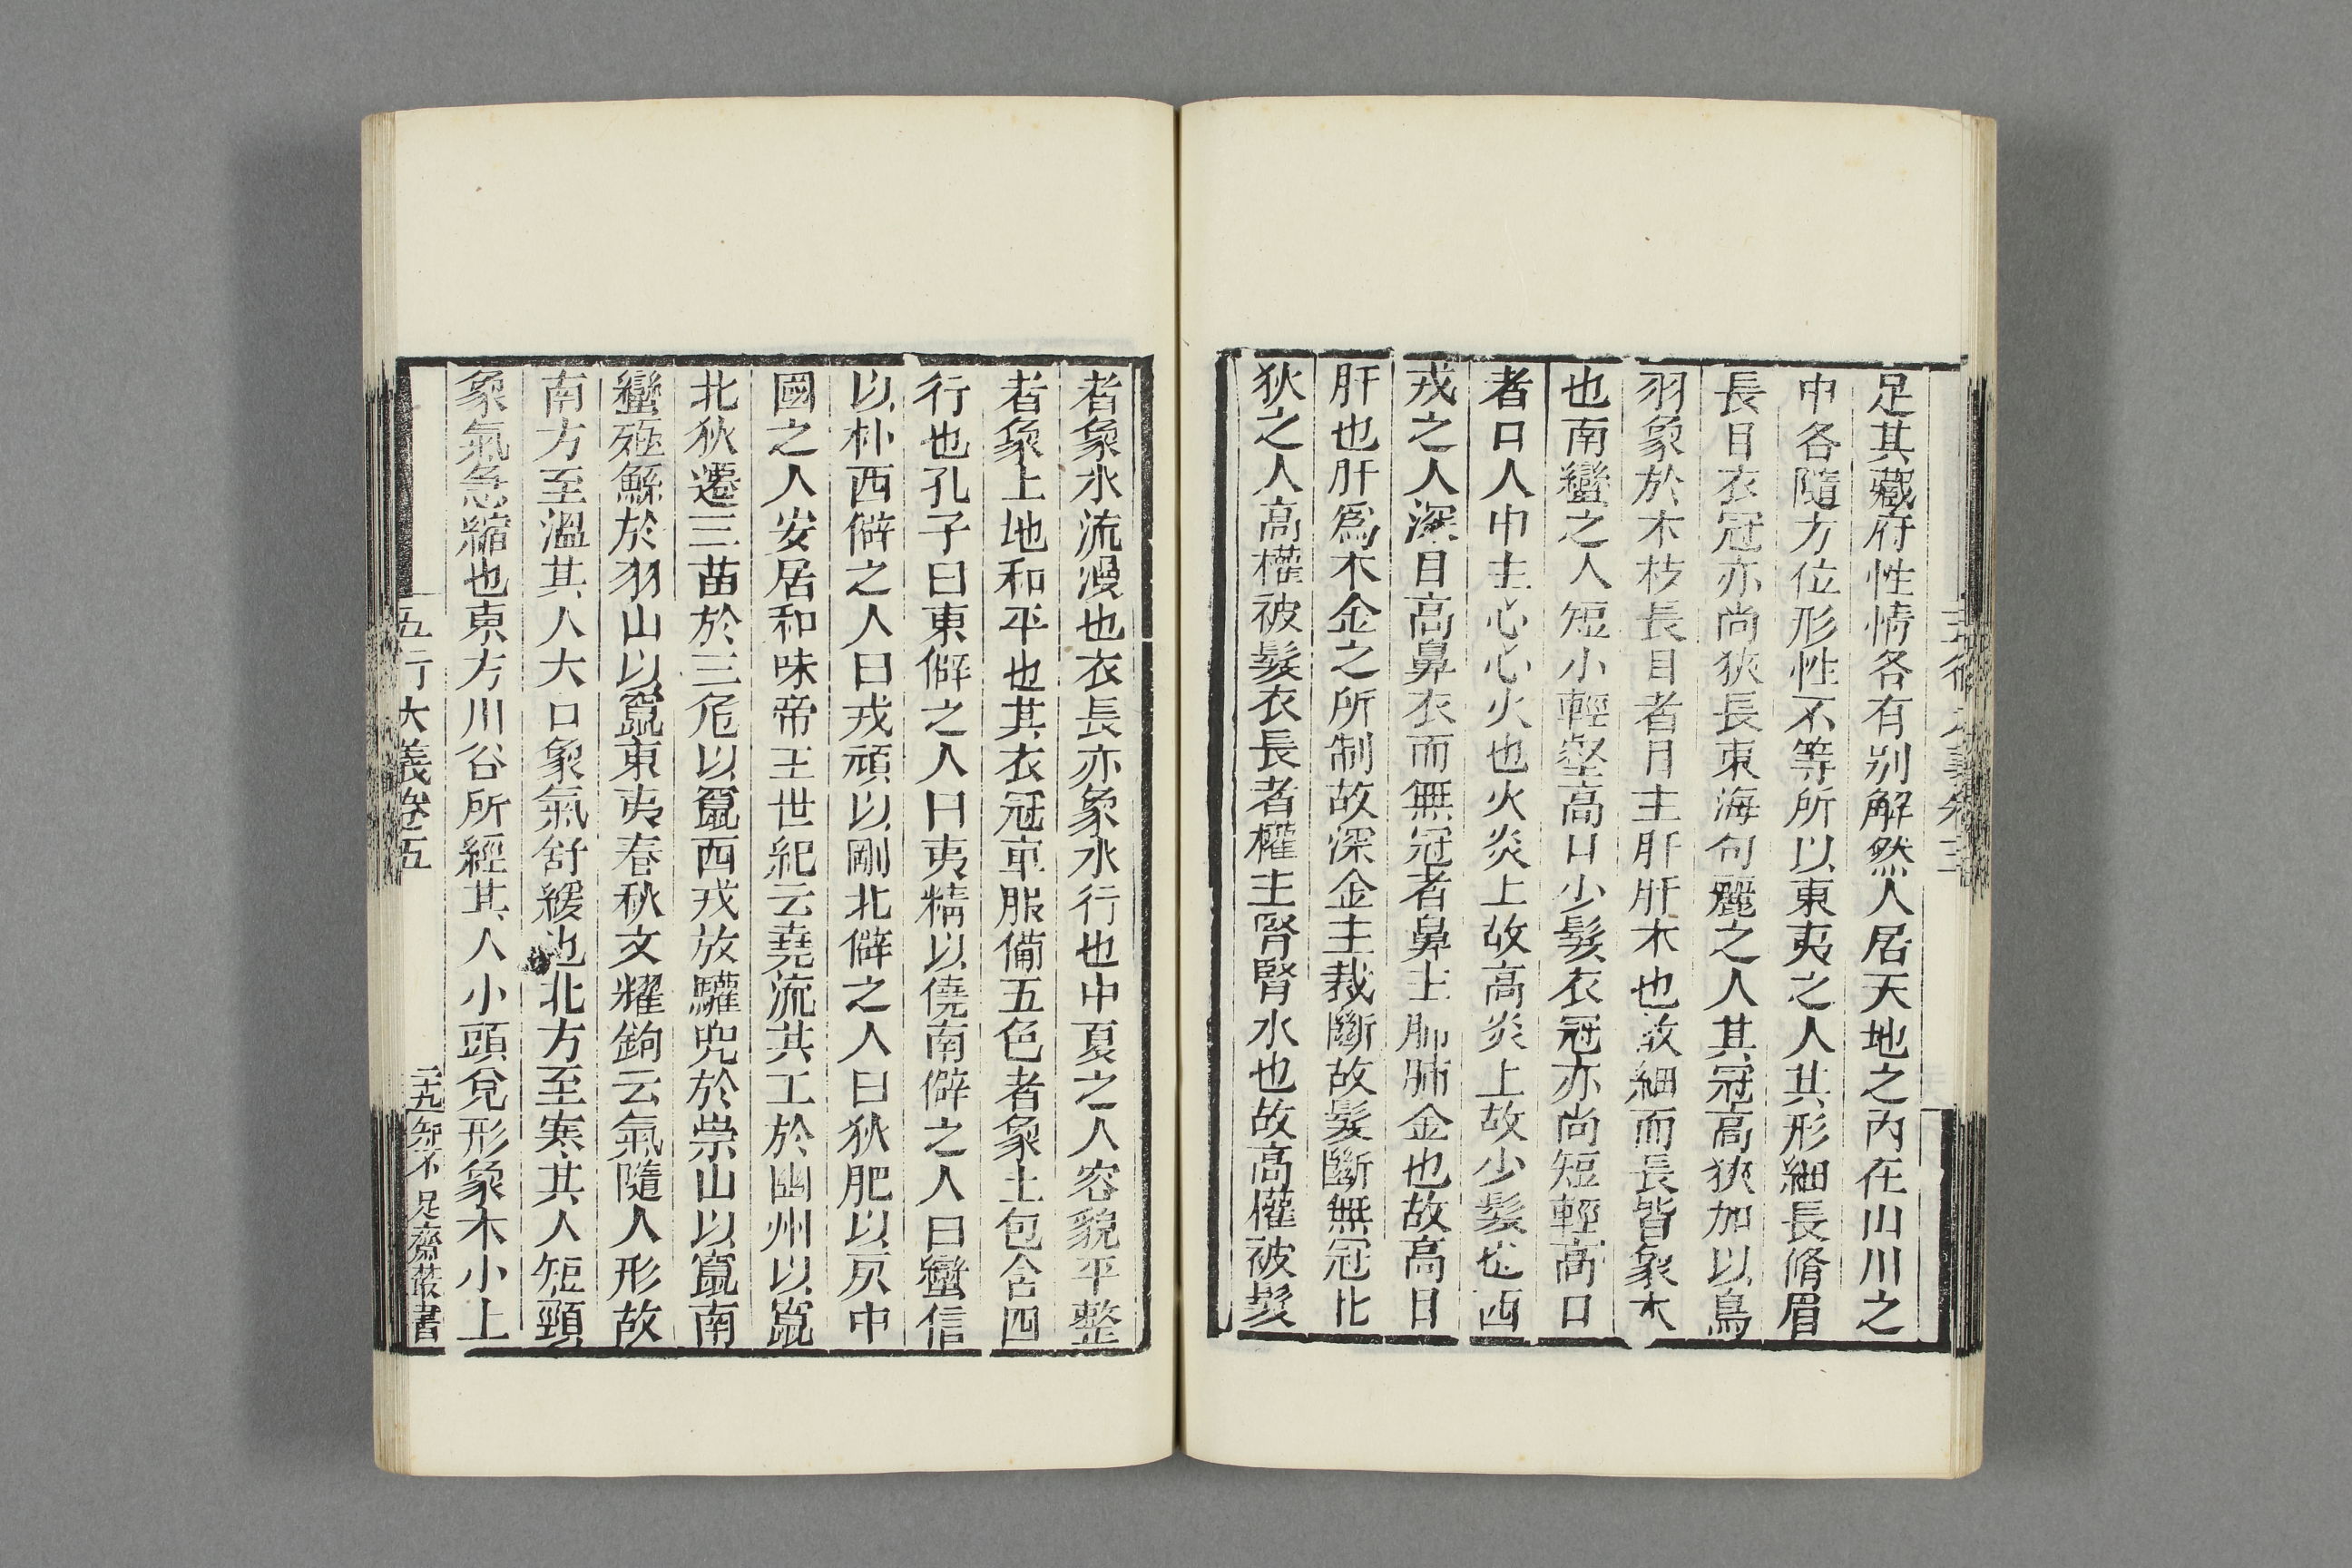 足其藏府性情各有别解然人居天地之內在山川之
中各隨方位形性不等所以東夷之人其形細長脩眉
長目衣冠亦尚狹長東海句麗之人其冠高狹加以鳥
羽象於木枝長目者目主肝肝木也故細而長皆象木
也南蠻之人短小輕壑高口少髮衣冠亦尚短輕高口
者口人中主心心火也火炎上故高炎上故少髮也西
戎之人深目高鼻衣而無冠者鼻主肺肺金也故高目
肝也肝爲木金之所制故深金主裁斷故髮斷無冠北
狄之人高權被髮衣長者權主腎腎水也故高權被髮
者象水流漫也衣長亦象水行也中夏之人容貌平整
者象土地和平也其衣冠車服備五色者象土包含四
行也孔子曰東僻之人曰夷精以僥南僻之人曰蠻信
以朴西僻之人曰戎頑以剛北僻之人曰狄肥以戾中
國之人安居和味帝王世紀云堯流共工於幽州以竄
北狄遷三苗於三危以竄西戎放驩兜於崇山以竄南
蠻殛鯀於羽山以竄東夷春秋文耀鉤云氣隨人形故
南方至溫其人大口象氣舒緩也北方至寒其人短頸
象氣急縮也東方川谷所經其人小頭兌形象木小上
五行大義卷五 二十五 知不足齋叢書